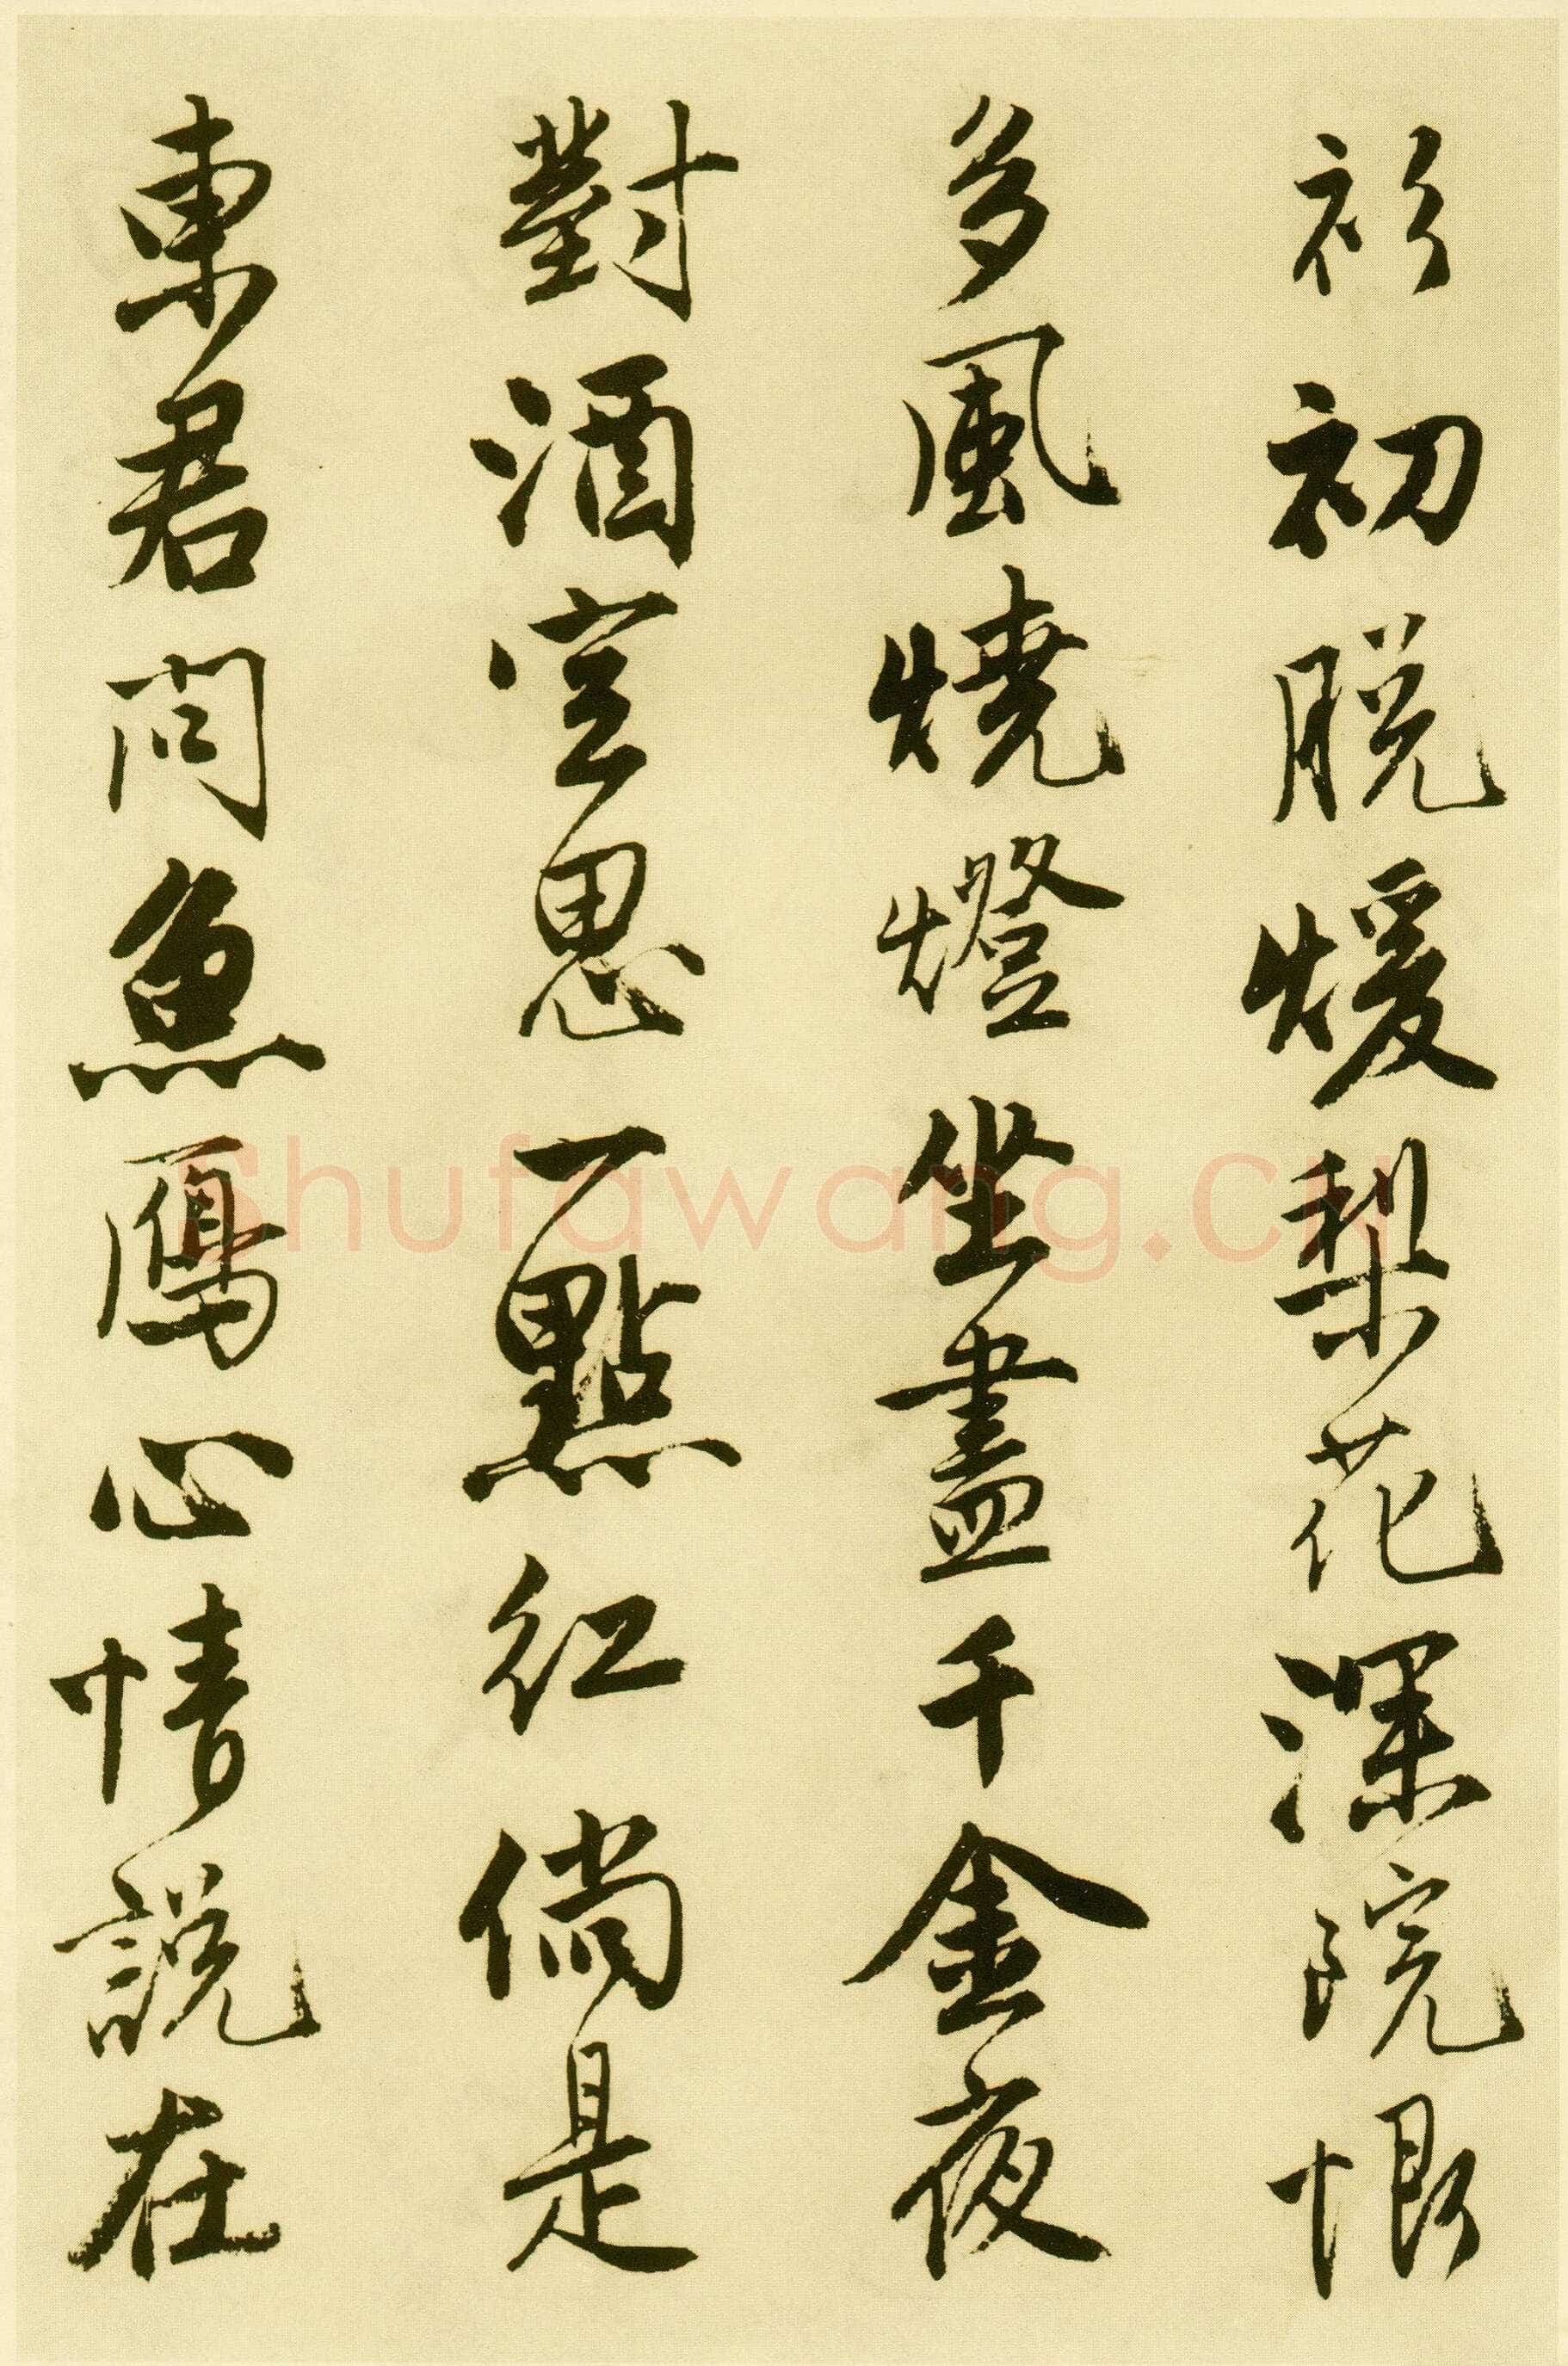 衫初脱煖梨花深院恨
多風燒燈坐盡千金夜
對酒空思一點紅倘是
東君問魚鴈心情說在
shufawang.cn